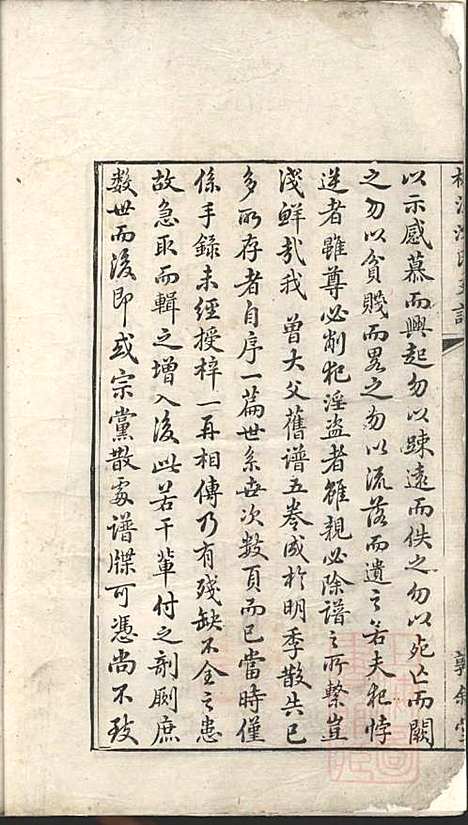 以示感慕而興起勿以踈遠而佚之勿以死亡而闕
之勿以貧賤而畧之勿以流落而遺之若夫犯悖
逆者雖尊必削犯淫盜者雖親必除譜之所繫豈
淺鮮哉我 曾大父舊谱五卷成於明季散失已
多所存者自序一篇世系世次数頁而已當時僅
係手錄未經授梓一再相傳乃有殘缺不全之患
故急取而輯之增入後此若干輩付之剞劂庶
数世而後即或宗黨散處谱牒可憑尚不致
氏支譜
敦叙堂